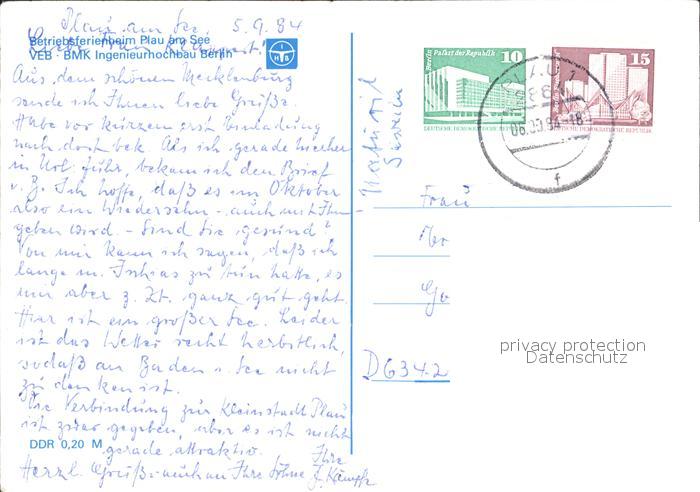 Plau am See, 5.9.84
Betriebsferienheim Plau am See
VEB · BMK Ingenieurhochbau Berlin
IHB
Liebe Frau
Aus dem schönen Mecklenburg
sende ich Ihnen liebe Grüße.
Habe vor kurzem erst Einladung
nach dort bek. Als ich gerade hierher
in Url. fuhr, bekam ich den Brief
v. J. Ich hoffe, daß es im Oktober
also ein Wiedersehn - auch mit Ihn
geben wird. - Sind Sie gesund?
Von mir kann ich sagen, daß ich
lange m. Ischias zu tun hatte, es
mir aber z. Zt. ganz gut geht.
Hier ist ein großer See. Leider
ist das Wetter recht herbstlich,
sodaß an Baden i. See nicht
zu denken ist.
Die Verbindung zur Kleinstadt Plau
ist zwar gegeben, aber es ist nicht
gerade attraktiv. Ihre
DDR 0,20 M
Herzl. Grüße auch an Ihre Söhne J. Kämpfe
Berlin, Palast der Republik
10
DEUTSCHE DEMOKRATISCHE REPUBLIK
15
DEUTSCHE DEMOKRATISCHE REPUBLIK
PLAU 1
06.09.84-18
f
Frau
Ge
D6342
privacy protection
Datenschutz